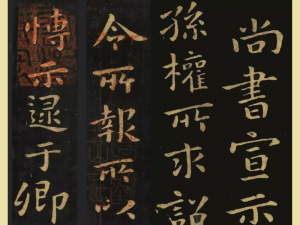 尚書宣示
孫權所求詔
令所報所以
博示逮于卿